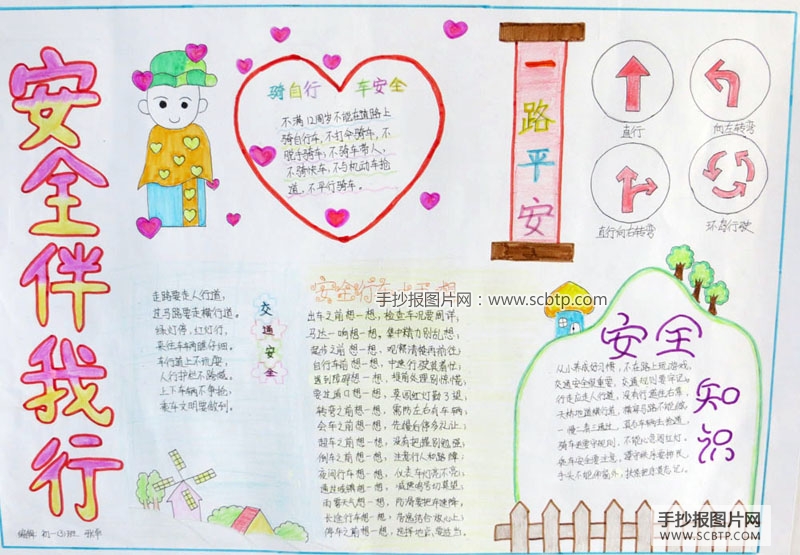 安全伴我行
骑自行 车安全
不满12周岁不能在道路上
骑自行车,不打伞骑车,不
脱手骑车,不骑车带人,
不骑快车,不与机动车抢
道,不平行骑车。
一路平安
直行
向左转弯
直行向右转弯
环岛行驶
走路要走人行道,
过马路要走横行道。
绿灯停,红灯行,
来往车辆瞧仔细。
车行道上不玩耍,
人行护栏不跨越。
上下车辆不争抢,
乘车文明要做到。
交通安全
安全行车
手抄报图片网:www.scbtp.com
出车之前想一想,检查车况要周详,
马达一响想一想,集中精力别乱想;
起步之前想一想,观察清楚再前往;
自行车前想一想,中速行驶
遇到障碍想一想,提前处理别惊慌;
要过道口想一想,莫闯红灯勤了望;
转弯之前想一想,需防左右有车辆;
会车之前想一想,先慢后停多礼让;
超车之前想一想,没有把握别勉强;
倒车之前想一想,注意行人和路障;
夜间行车想一想,仪表车灯亮不亮;
通过城镇想一想,减速鸣号切莫
雨雾天气想一想,防滑要把车速降;
长途行车想一想,劳逸结合放心上;
停车之前想一想,选择地点
安全
知识
从小养成好习惯,不在路上玩游戏。
交通安全很重要,交通规则要牢记。
行走应走人行道,没有行道往右靠。
天桥地道横行道,横穿马路
一慢二看三通过,莫与车辆去抢道。
骑车更要守规则,不能心急闯红灯。
乘车安全要注意,遵守秩序要排队。
手头不能伸窗外,扶紧把手莫忘记。
编辑:初一(3)班
手抄报图片网
WWW.SCBTP.COM